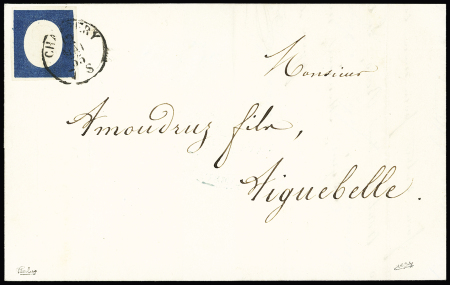 CHAMBERY
S
Monsieur
Amoudruz fils,
Aiguebelle.